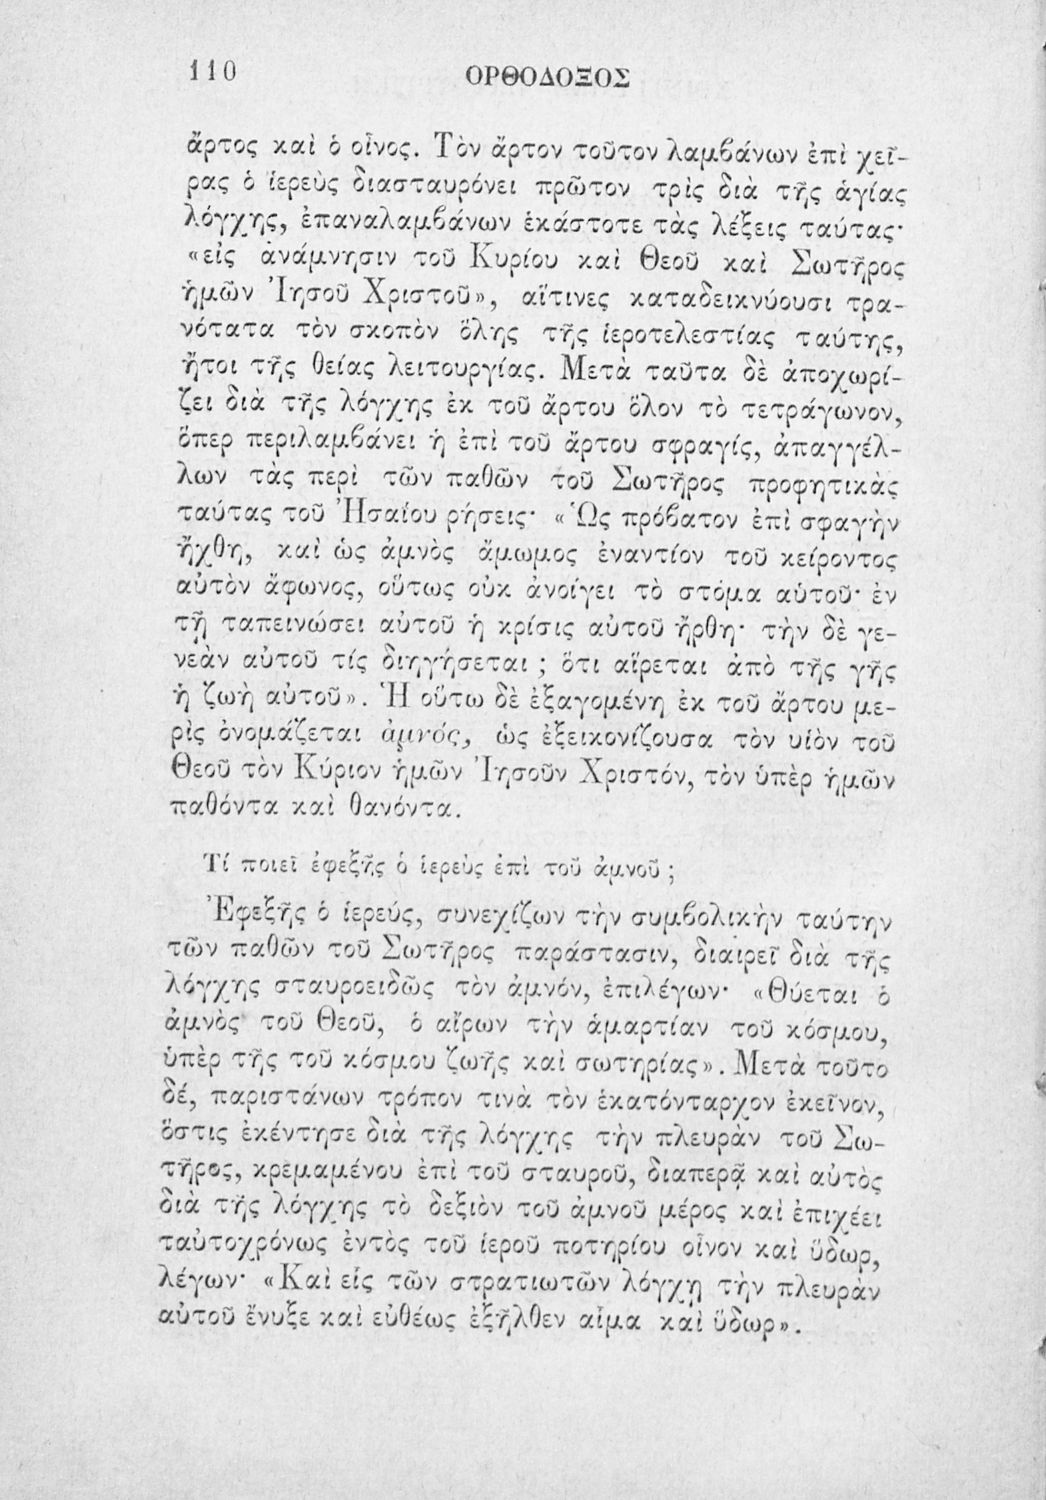 110
ΟΡΘΟΔΟΞΟΣ
ἄρτος καὶ ὁ οἶνος. Τὸν ἄρτον τοῦτον λαμβάνων ἐπὶ χεῖ-
ρας ὁ ἱερεὺς διασταυρόνει πρῶτον τρὶς διὰ τῆς ἁγίας
λόγχης, ἐπαναλαμβάνων ἑκάστοτε τὰς λέξεις ταύτας·
«εἰς ἀνάμνησιν τοῦ Κυρίου καὶ Θεοῦ καὶ Σωτῆρος
ἡμῶν Ἰησοῦ Χριστοῦ», αἵτινες καταδεικνύουσι τρα-
νότατα τὸν σκοπὸν ὅλης τῆς ἱεροτελεστίας ταύτης,
ἤτοι τῆς θείας λειτουργίας. Μετὰ ταῦτα δὲ ἀποχωρί-
ζει διὰ τῆς λόγχης ἐκ τοῦ ἄρτου ὅλον τὸ τετράγωνον,
ὅπερ περιλαμβάνει ἡ ἐπὶ τοῦ ἄρτου σφραγίς, ἀπαγγέλ-
λων τὰς περὶ τῶν παθῶν τοῦ Σωτῆρος προφητικὰς
ταύτας τοῦ Ἡσαΐου ρήσεις· «Ὡς πρόβατον ἐπὶ σφαγὴν
ἤχθη, καὶ ὡς ἀμνὸς ἄμωμος ἐναντίον τοῦ κείροντος
αὐτὸν ἄφωνος, οὕτως οὐκ ἀνοίγει τὸ στόμα αὑτοῦ· ἐν
τῇ ταπεινώσει αὐτοῦ ἡ κρίσις αὐτοῦ ἤρθη· τὴν δὲ γε-
νεὰν αὐτοῦ τίς διηγήσεται ; ὅτι αἴρεται ἀπὸ τῆς γῆς
ἡ ζωὴ αὐτοῦ». Ἡ οὕτω δὲ ἐξαγομένη ἐκ τοῦ ἄρτου με-
ρὶς ὀνομάζεται ἀμνός, ὡς ἐξεικονίζουσα τὸν υἱὸν τοῦ
Θεοῦ τὸν Κύριον ἡμῶν Ἰησοῦν Χριστόν, τὸν ὑπὲρ ἡμῶν
παθόντα καὶ θανόντα.
Τί ποιεῖ ἐφεξῆς ὁ ἱερεὺς ἐπὶ τοῦ ἀμνοῦ ;
Ἐφεξῆς ὁ ἱερεύς, συνεχίζων τὴν συμβολικὴν ταύτην
τῶν παθῶν τοῦ Σωτῆρος παράστασιν, διαιρεῖ διὰ τῆς
λόγχης σταυροειδῶς τὸν ἀμνόν, ἐπιλέγων· «Θύεται ὁ
ἀμνὸς τοῦ Θεοῦ, ὁ αἴρων τὴν ἁμαρτίαν τοῦ κόσμου,
ὑπὲρ τῆς τοῦ κόσμου ζωῆς καὶ σωτηρίας». Μετὰ τοῦτο
δέ, παριστάνων τρόπον τινὰ τὸν ἑκατόνταρχον ἐκεῖνον,
ὅστις ἐκέντησε διὰ τῆς λόγχης τὴν πλευρὰν τοῦ Σω-
τῆρος, κρεμαμένου ἐπὶ τοῦ σταυροῦ, διαπερᾷ καὶ αὐτὸς
διὰ τῆς λόγχης τὸ δεξιὸν τοῦ ἀμνοῦ μέρος καὶ ἐπιχέει
ταὐτοχρόνως ἐντὸς τοῦ ἱεροῦ ποτηρίου οἶνον καὶ ὕδωρ,
λέγων· «Καὶ εἷς τῶν στρατιωτῶν λόγχῃ τὴν πλευρὰν
αὐτοῦ ἔνυξε καὶ εὐθέως ἐξῆλθεν αἷμα καὶ ὕδωρ».